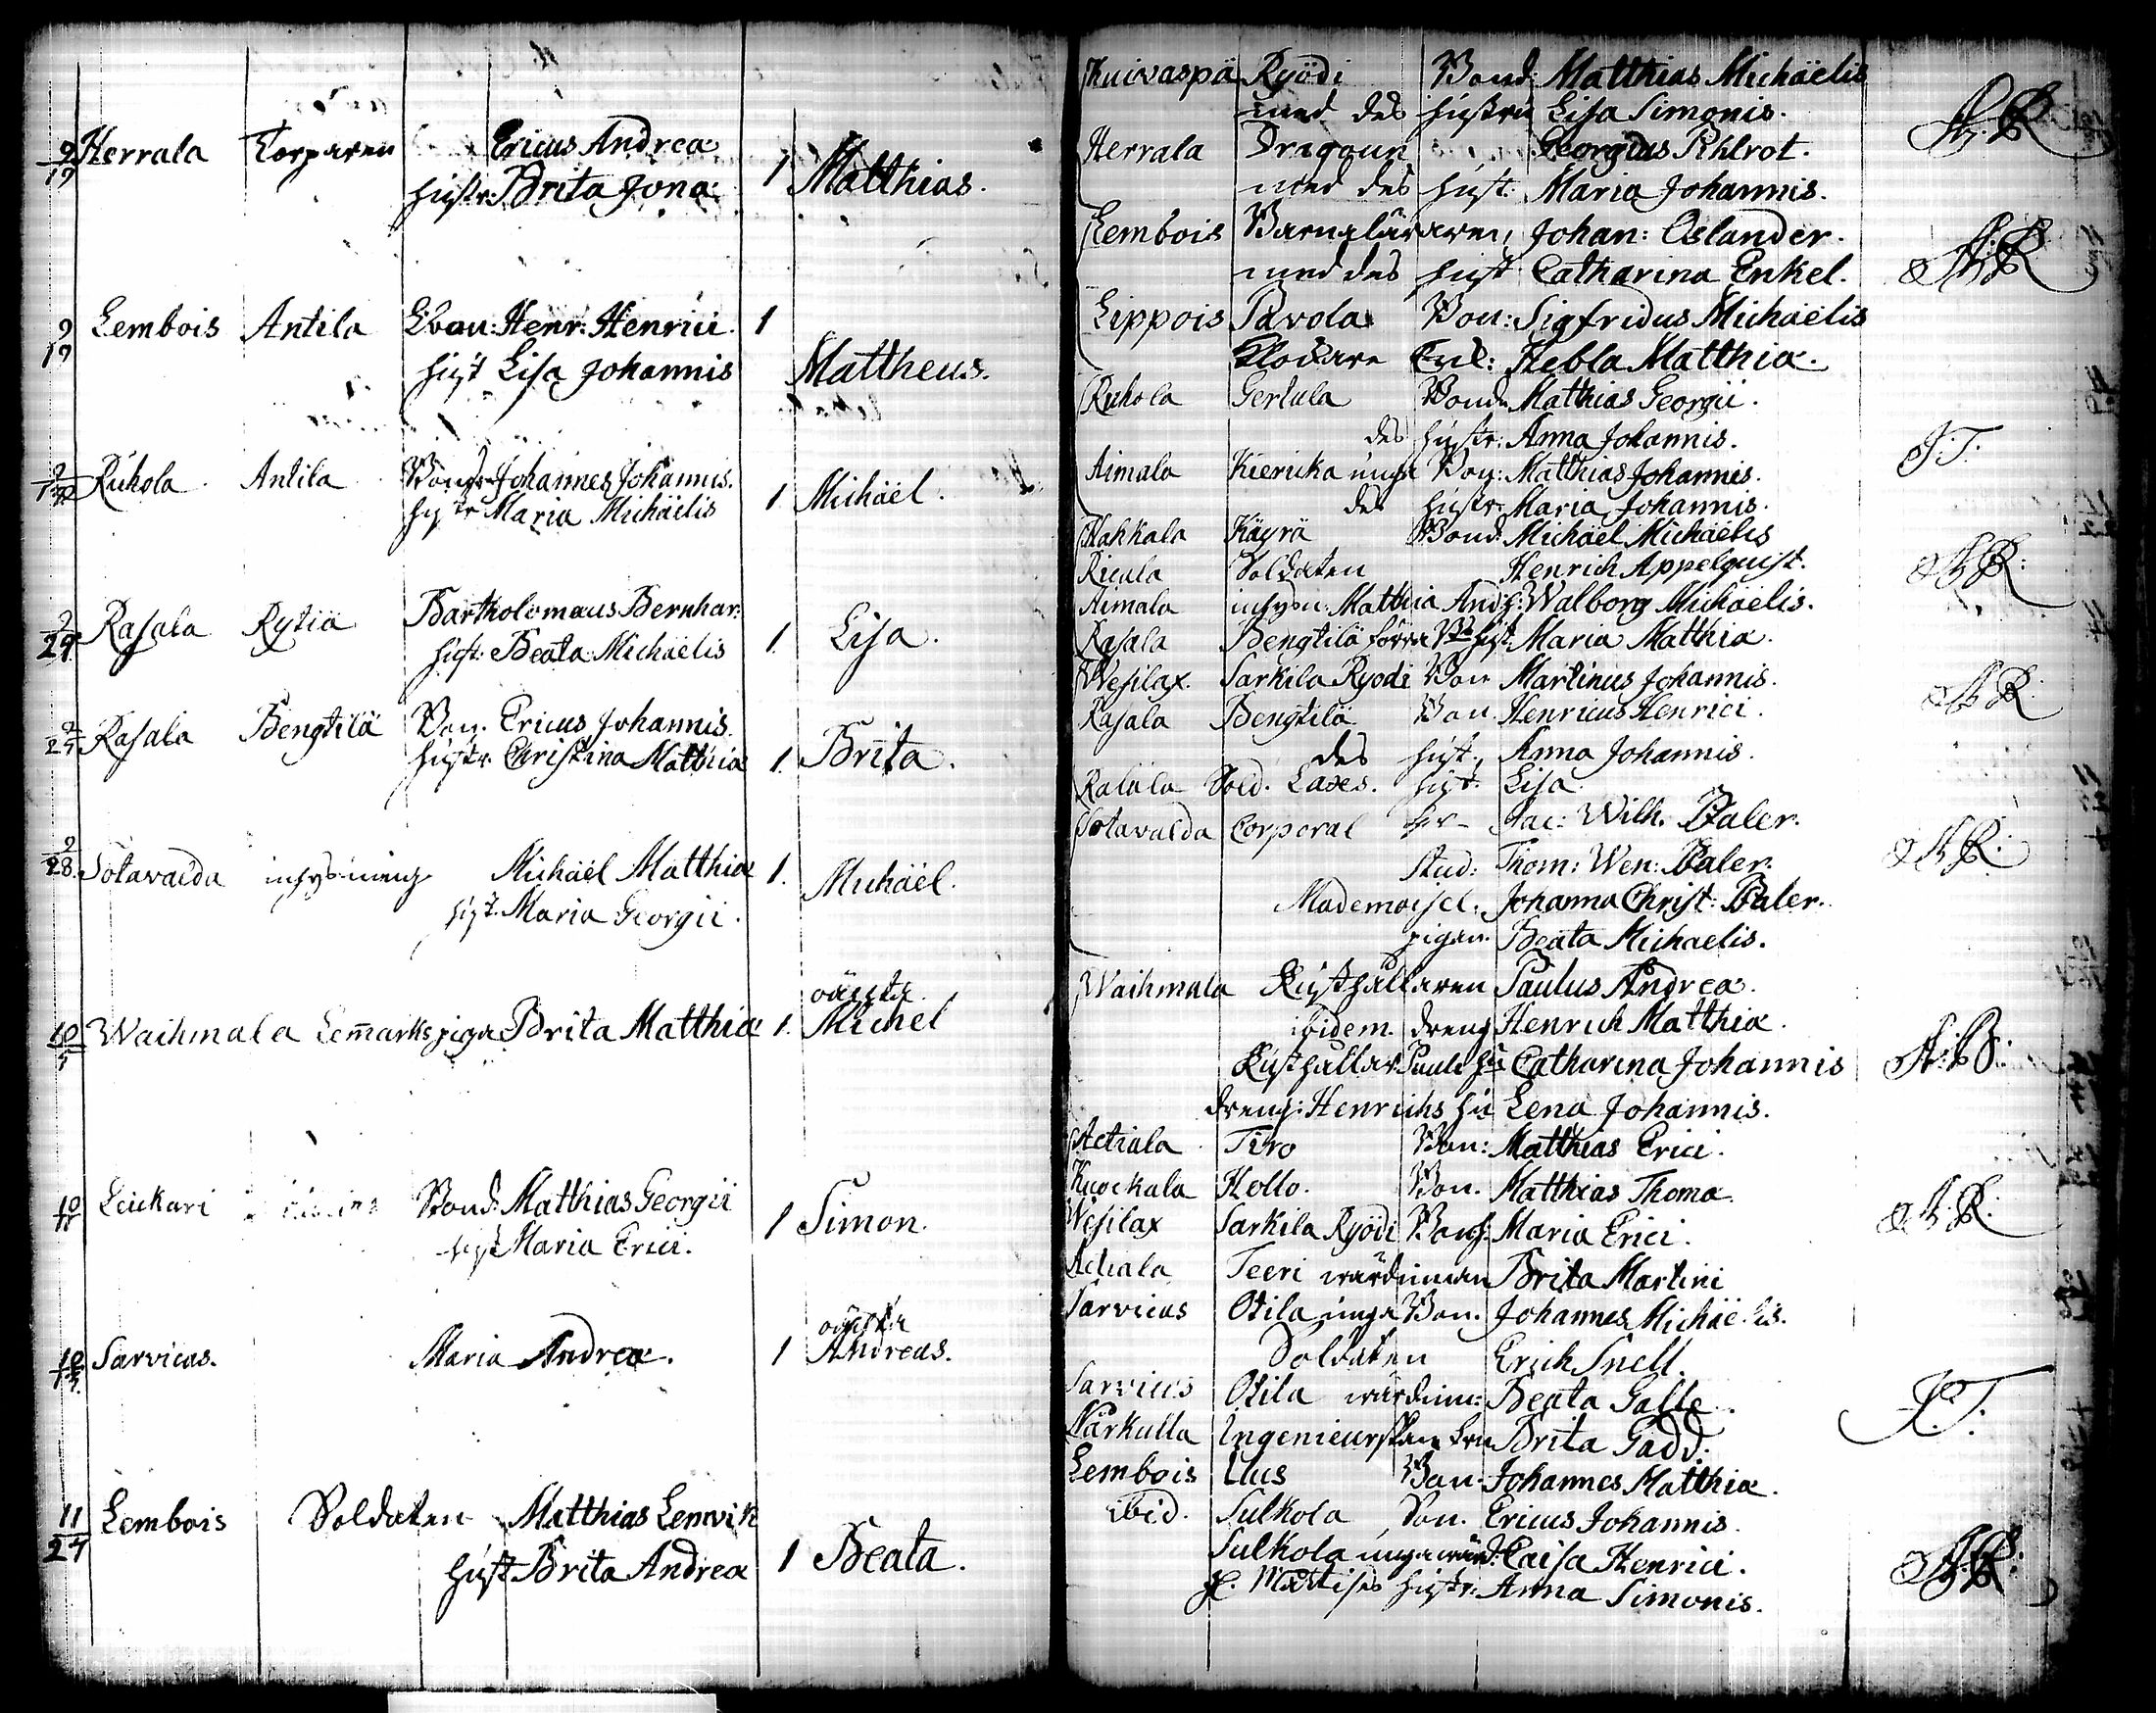 9/19 Herrala Torparen Ericus Andreæ
hustr: Brita Jona: 1 Matthias.
9/19 Lembois Antila Bon: Henr: Henrici 1
hust Lisa Johannis Mattheus.
Rúhola Antila Bond Johannes Johannis.
hustr Maria Michäelis 1 Michäel.
9/29 Rasala Rytiä Bartholomæus Bernhar:
hust: Beata Michäelis 1. Lisa.
Rasala Bengtilä Bon. Ericus Johannis.
hustr Christina Matthiæ 1. Brita.
9/28. Sotavalda inhysning Michäel Matthiæ 1. Michäel.
hust. Maria Georgii.
oäckta
10/5 Waihmala Lem̄arks piga Brita Matthiæ 1. Michel
10/11 Leickari Bond: Matthias Georgii
hust Maria Erici. 1 Simon.
oäckta
Sarvicas. Maria Andreæ. 1 Andreas.
11/24 Lembois Soldaten Matthias Lemvik
hust Brita Andreæ 1 Beata.
Kuivaspä Ryödi Bond: Matthias Michäelis
med des hustru Lisa Simonis.
Herrala Dragoun Georgius
med des hust: Maria Johannis. A.R.
Lembois Barnaläraren, Johan: Oslander.
med des hust Catharina Enkel. A.R.
Lippois Pavola Bon: Sigfridus Michäelis
Klockare Enk: Hebla Matthiæ.
Ruhola Gertula Bond. Mathias Georgii.
des hustr: Anna Johannis. J.T.
Aimala Kiericka unga Bon: Matthias Johannis.
des hustr: Maria Johannis.
Hakkala Käyrä Bond. Michäel Michäelis
Ricala Soldaten Henrich Appelquist. A.R.
Aimala inhysn: Matthia And: h: Walborg Michäelis.
Rasala Bengtilä förra hust. Maria Matthiæ.
Wesilax. Sarkila Ryödi Bon Martinus Johannis. A.R.
Rasala Bengtilä Bon. Henricus Henrici.
des hust. Anna Johannis.
Rasala Sold. Laxes. hust. Lisa
Sotavalda Corporal her- Jac: Wilh. Paler.
Stud: Thom: Wen: Paler. A.R.
Mademoisel. Johanna Christ: Paler.
pigan. Beata Michaelis.
Waihmala Rusthållaren Paulus Andreæ.
ibidem. dreng Henrich Matthiæ.
Rusthållar Pauls hu Catharina Johannis A.B.
dreng: Henrichs hu Lena Johannis.
Actiala Tiro Bon: Matthias Erici.
Kuockala Hollo. Bon. Matthias Thomæ.
Wesilax Sarkila Ryödi Bon h. Maria Erici. A.R.
Actiala Teeri wärdinnan Brita Martini
Sarvicas Otila unga Bon. Johannes Michäelis.
Soldaten Erich Snell.
Sarvicas Otila wärdinn: Beata Galle. J.T.
Närkulla Ingenieurskan fru Brita Gadd.
Lembois Uus Bon. Johannes Matthiæ.
ibid. Sulkola Bon. Ericus Johannis.
Sulkola unga wärd: Caisa Henrici. A.R.
Mattises hustr. Anna Simonis.